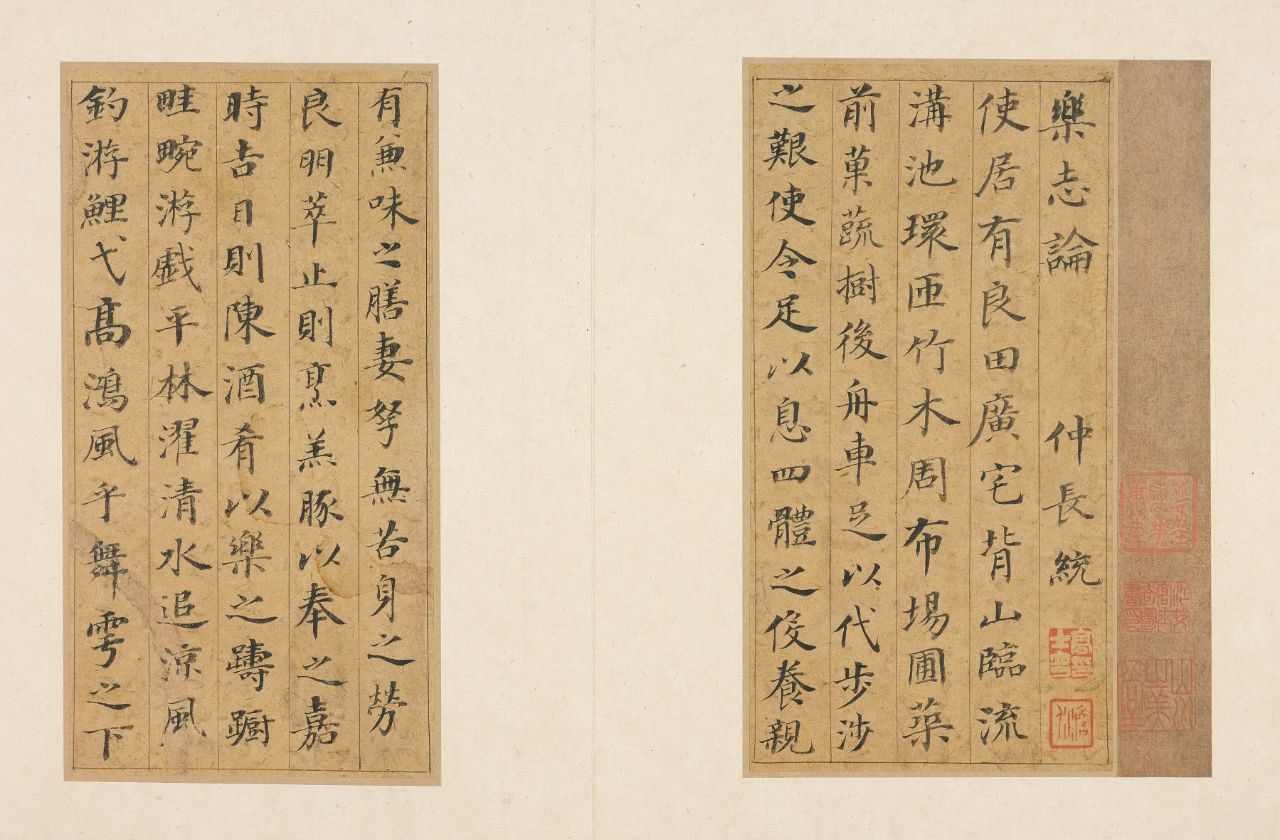 樂志論 仲長統
使居有良田廣宅背山臨流
溝池環匝竹木周布場圃築
前菓蔬樹後舟車足以代步涉
之艱使令足以息四體之役養親
有兼味之膳妻孥無苦身之勞
良朋萃止則烹羔豚以奉之嘉
時吉日則陳酒肴以樂之躊躕
畦畹游戲平林濯清水追涼風
釣游鯉弋高鴻風乎舞雩之下